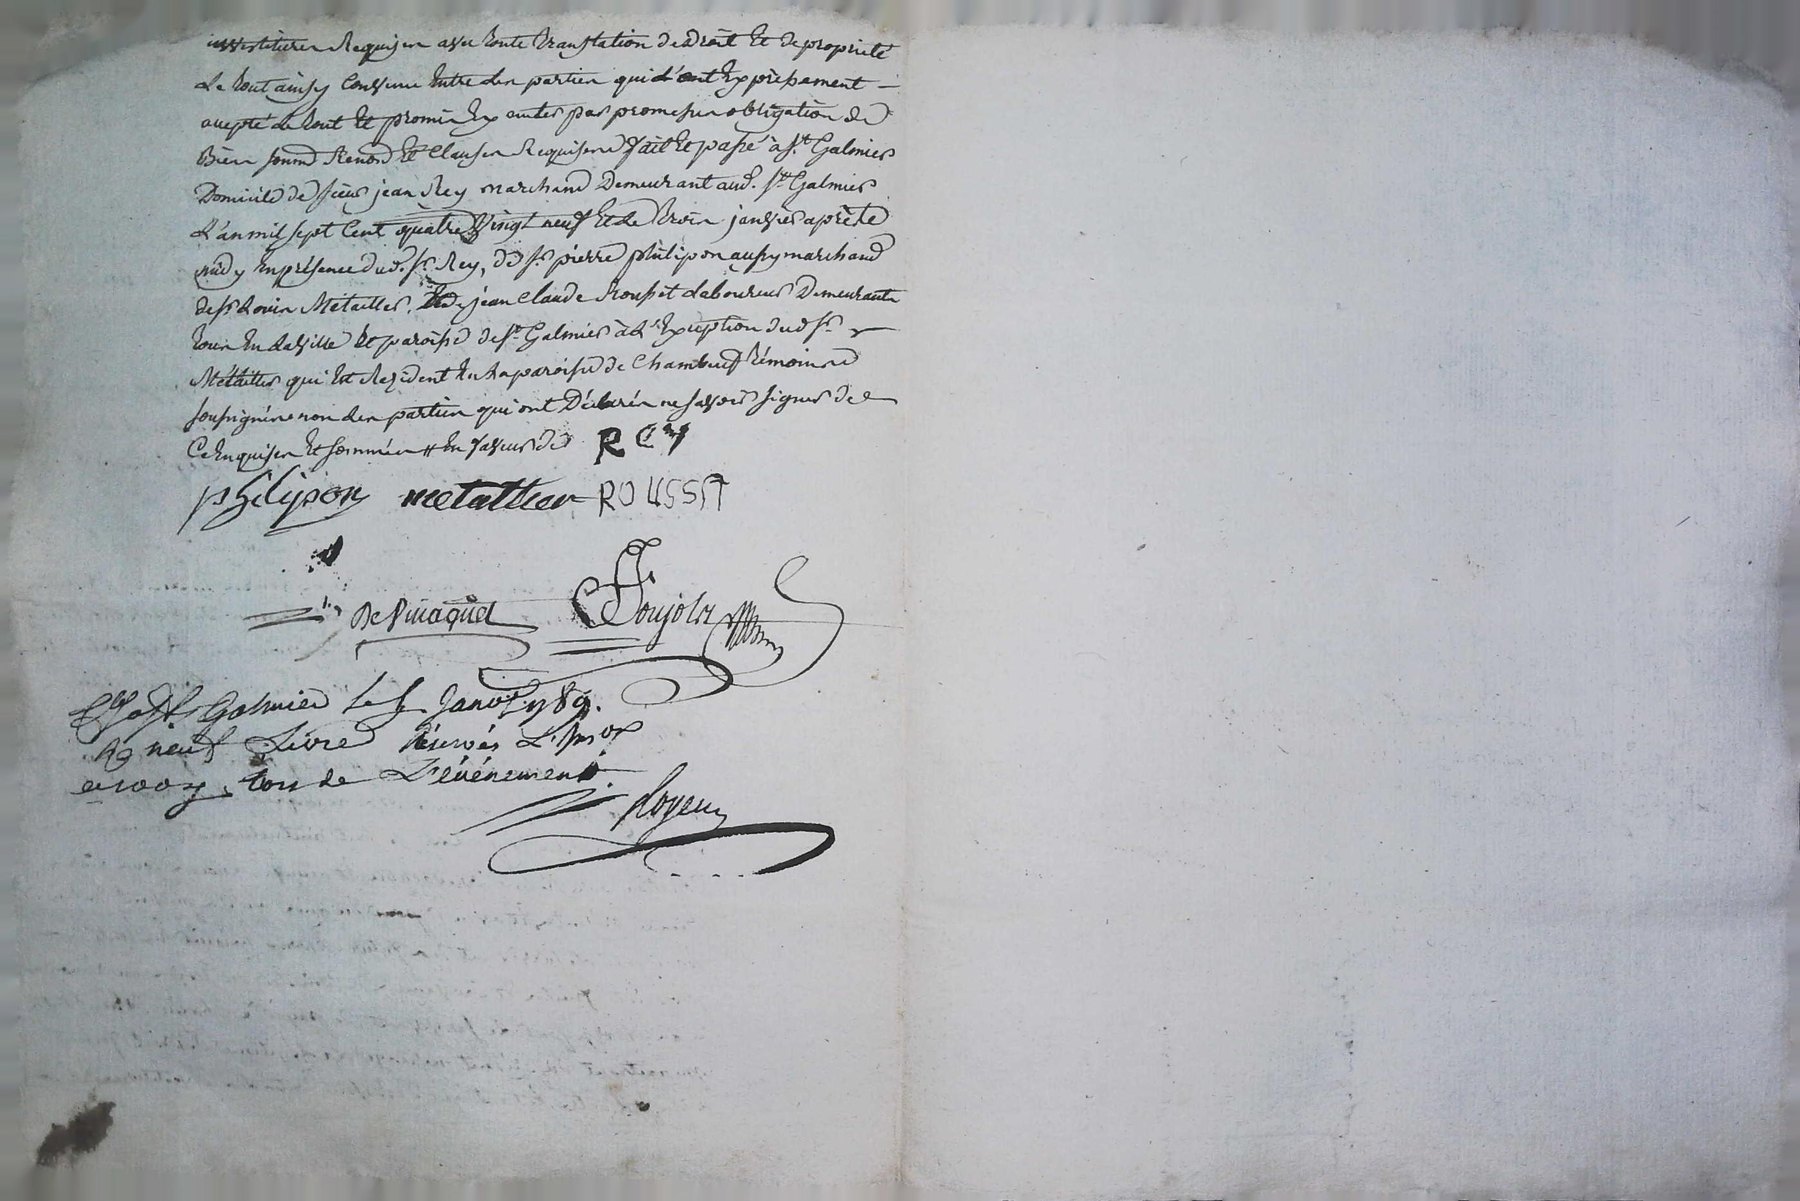 investitures Requises avec toute translation de droit et de proprieté
Le tout ainsy convenu entre les parties qui l'ont expressement
accepté le tout et promis executer par promesses obligation de
Bien soumd Renond et Clauses Requises fait et passé à St Galmier
Domicile de sieur jean Rey marchand Demeurant aud. St Galmier
L'an mil sept Cent quatre vingt neuf et le trois janvier après
midy en présence dud. Sr Rey, de Sr pierre philipon aussy marchand
de Sr Métailler, et de jean Claude Rousset laboureur Demeurants
tous en la ville et paroisse de St Galmier à l'exception dud Sr
Métailler qui est Résident en la paroisse de Chambeuf témoins
soussignés non les parties qui ont Déclarés ne savoir signer de
Ce Enquises et sommées # en faveur de REY
philipon metallier ROUSSET
Poujols
Glé à St Galmier le Janv. 1789.
neuf Livre réservés
lors de L'événement.
Royeu